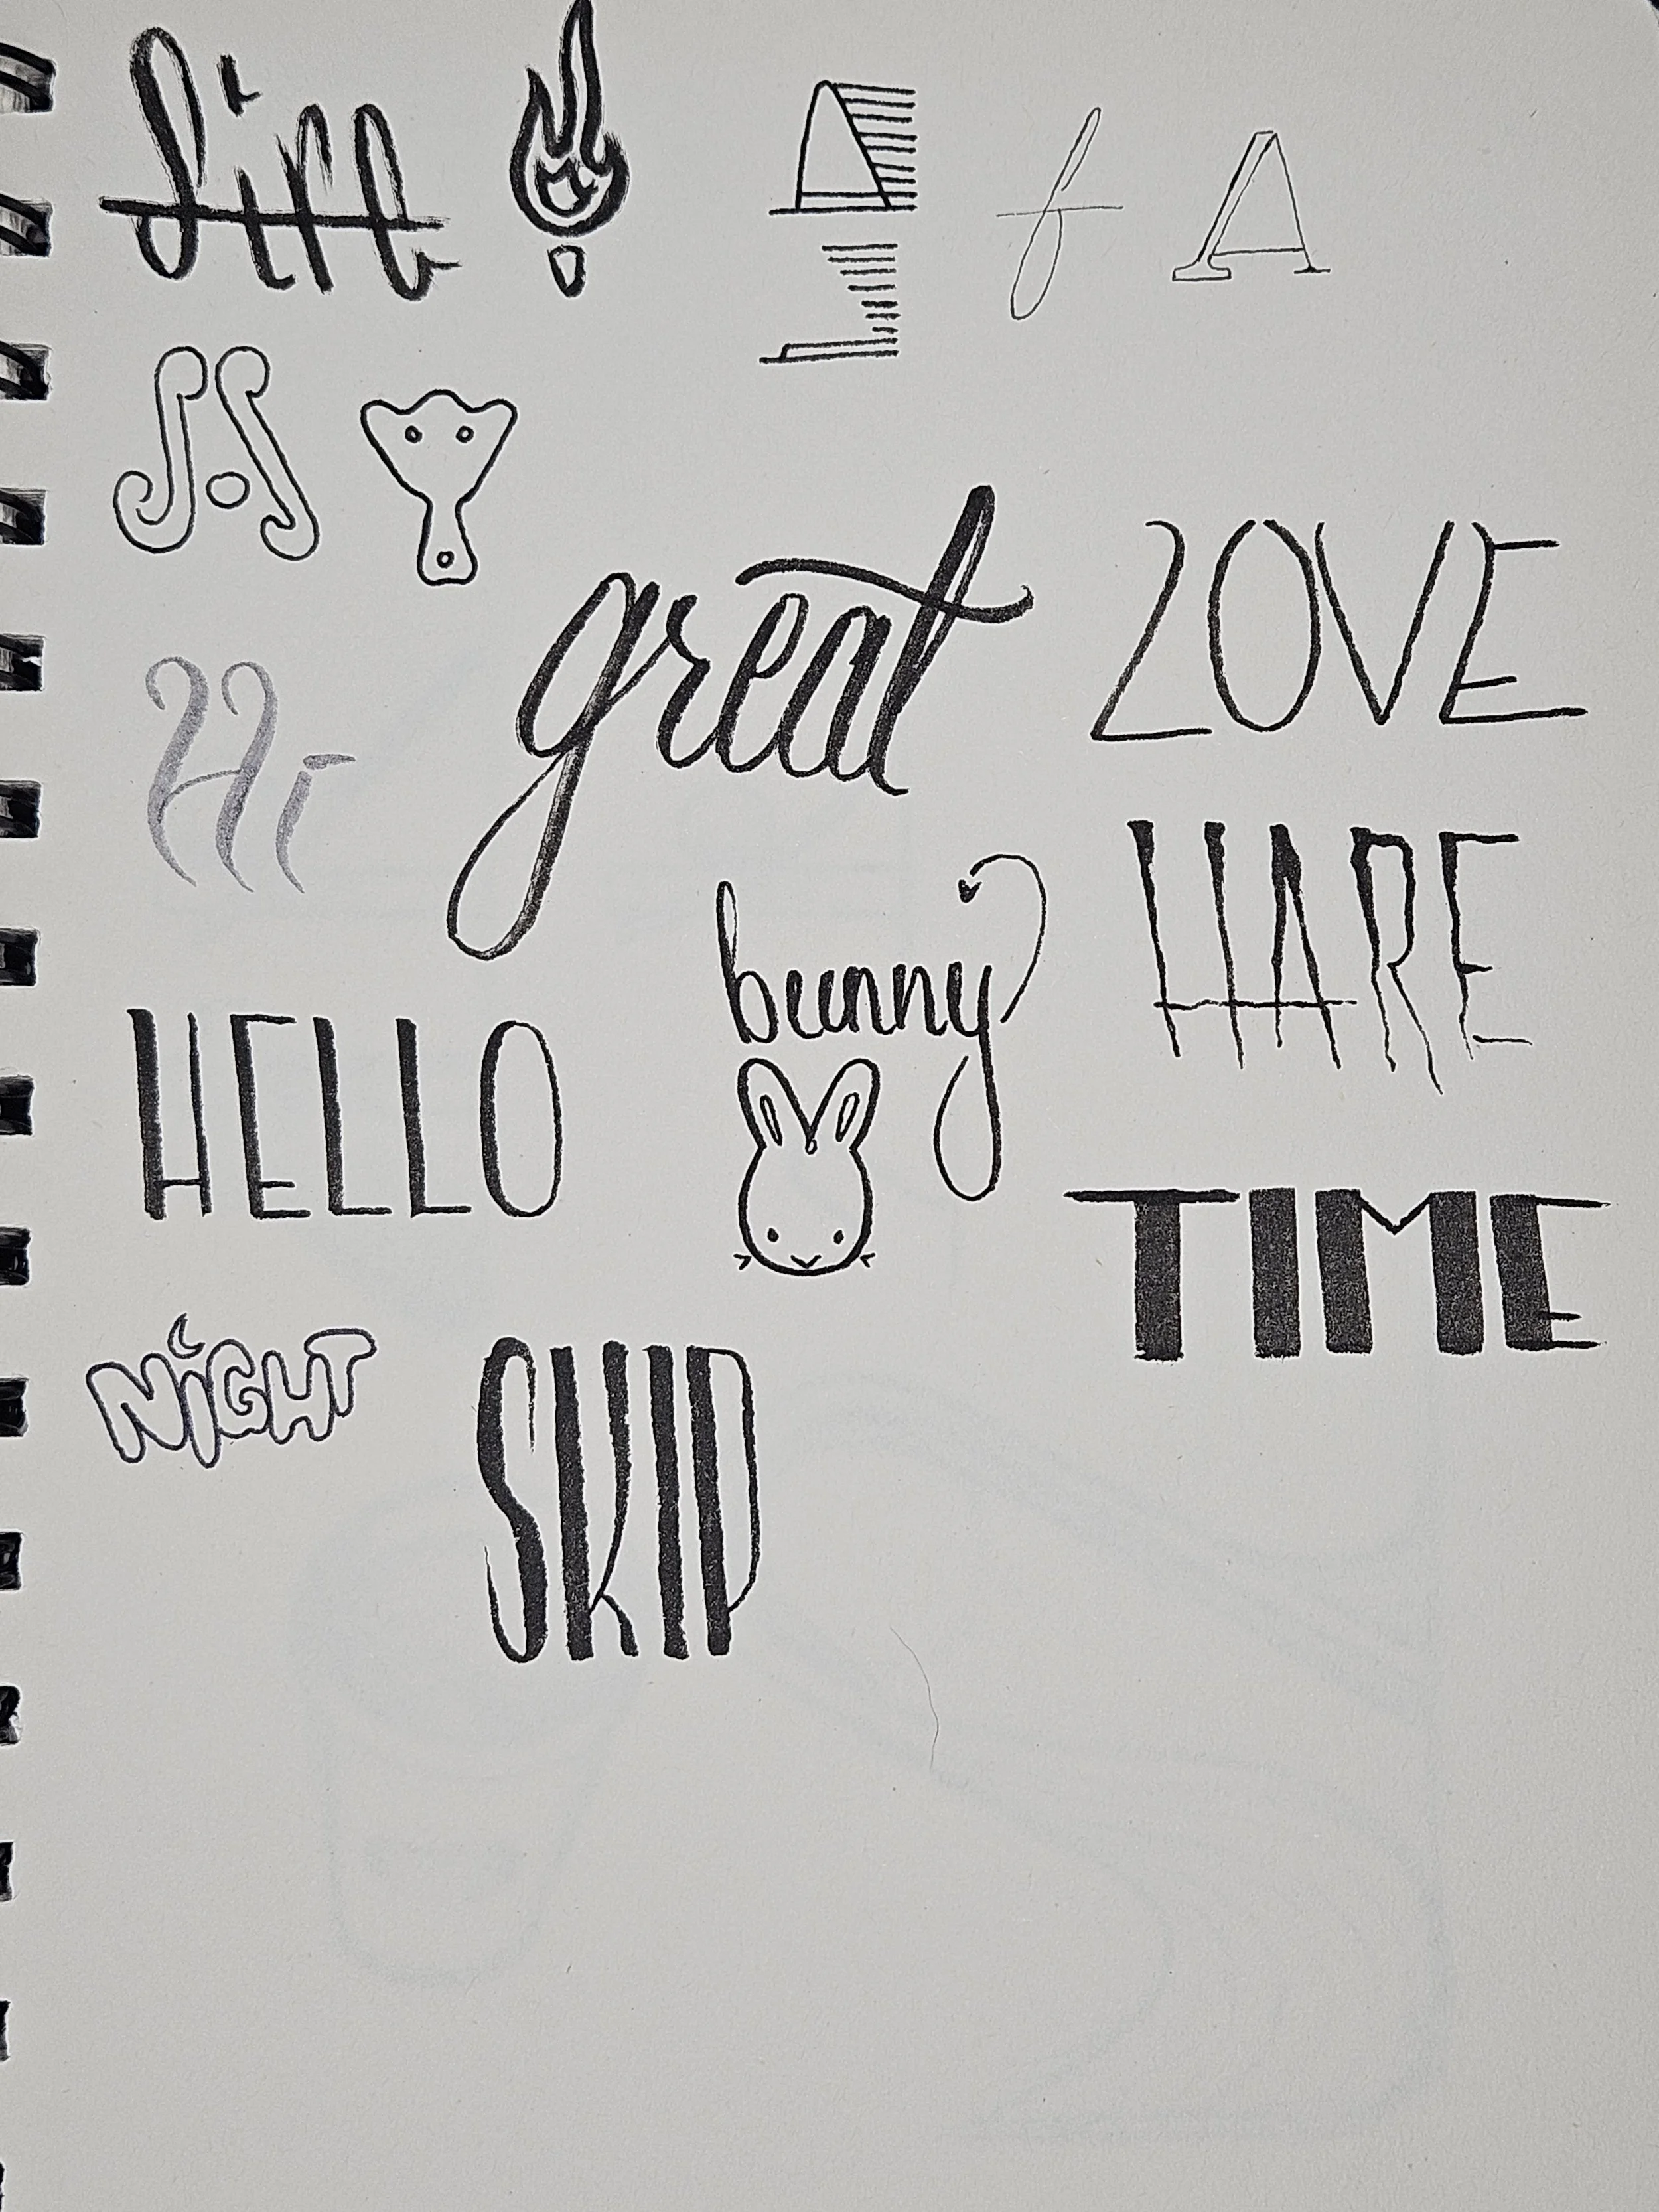 fire
A f A
great
LOVE
Hi
HARE
bunny
HELLO
TIME
NIGHT
SKIP